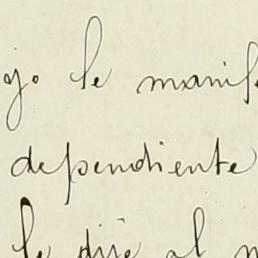 yo le manif
dependiente
le dije al